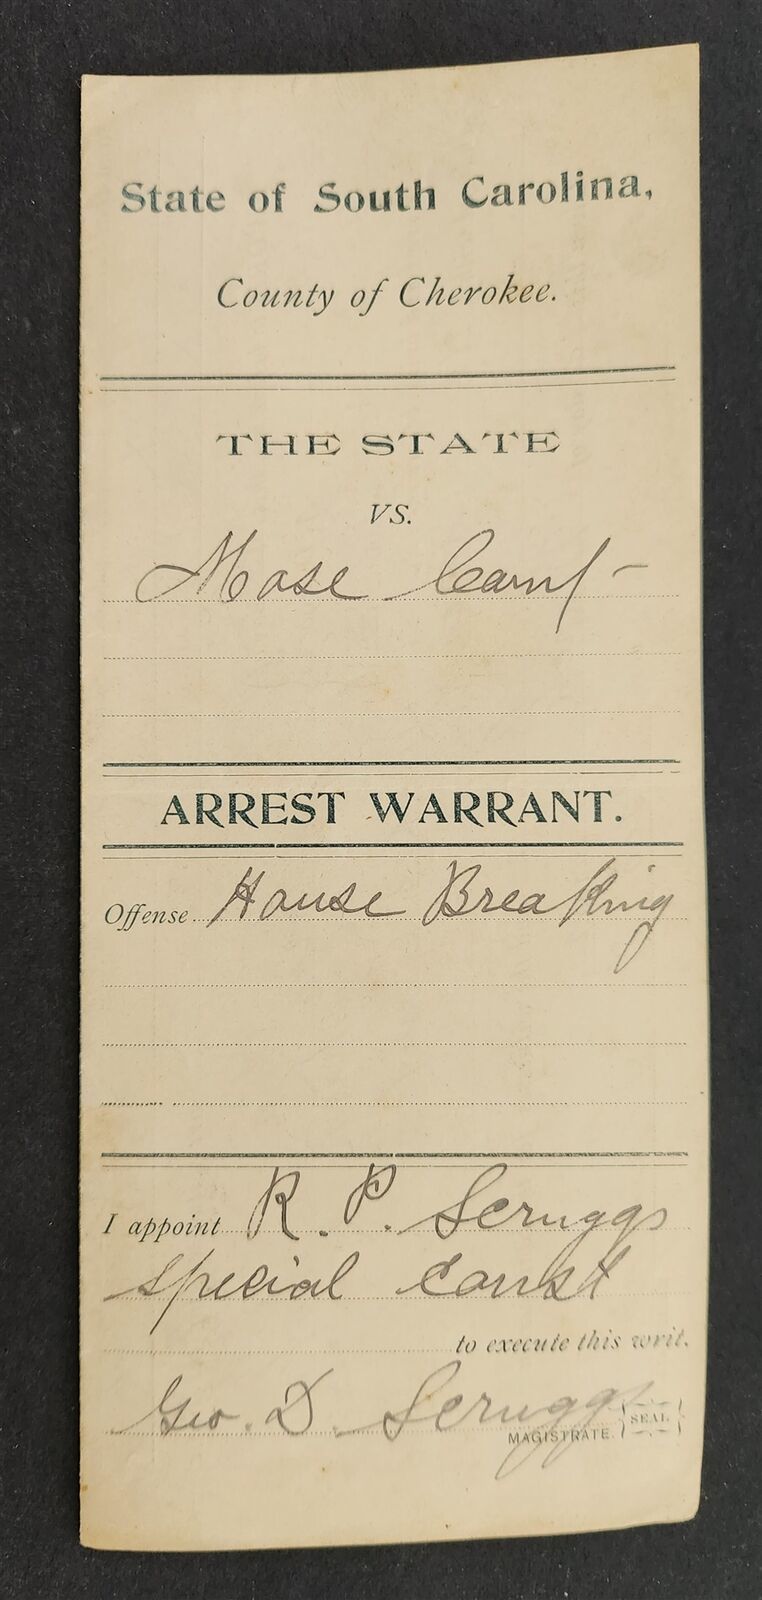 State of South Carolina,
County of Cherokee.
THE STATE
VS.
Mose Camp
ARREST WARRANT.
Offense House Breaking
I appoint R. P. Scruggs
special const
to execute this writ.
Geo. D. Scruggs
MAGISTRATE. SEAL